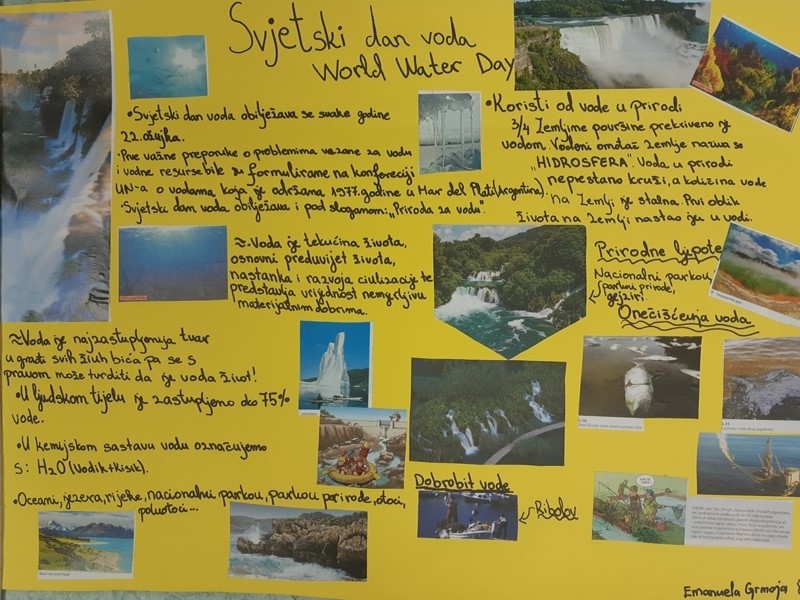 Svjetski dan voda
World Water Day
•Svjetski dan voda obilježava se svake godine
22. ožujka.
•Prve važne preporuke o problemima vezane za vodu
i vodne resurse bile su formulirane na konferenciji
UN-a o vodama, koja je održana 1977. godine u Mar del Plati (Argentina).
•Svjetski dan voda obilježava i pod sloganom: „Priroda za vodu".
•Koristi od vode u prirodi
3/4 Zemljine površine prekriveno je
vodom. Vodeni omotač Zemlje naziva se
„HIDROSFERA". Voda u prirodi
neprestano kruži, a količina vode
na Zemlji je stalna. Prvi oblik
života na Zemlji nastao je u vodi.
≈Voda je tekućina života,
osnovni preduvijet života,
nastanka i razvoja civilizacije te
predstavlja vrijednost nemjerljivu
materijalnim dobrima.
Prirodne ljepote
Nacionalni parkovi,
parkovi prirode,
gejziri
Onečišćenja voda
≈Voda je najzastupljenija tvar
u građi svih živih bića pa se s
pravom može tvrditi da je voda život!
•U ljudskom tijelu je zastupljeno oko 75%
vode.
•U kemijskom sastavu vodu označujemo
s: H2O (Vodik+Kisik).
•Oceani, jezera, rijeke, nacionalni parkovi, parkovi prirode, otoci,
poluotoci...
Dobrobit vode
Ribolov
Emanuela Grmoja